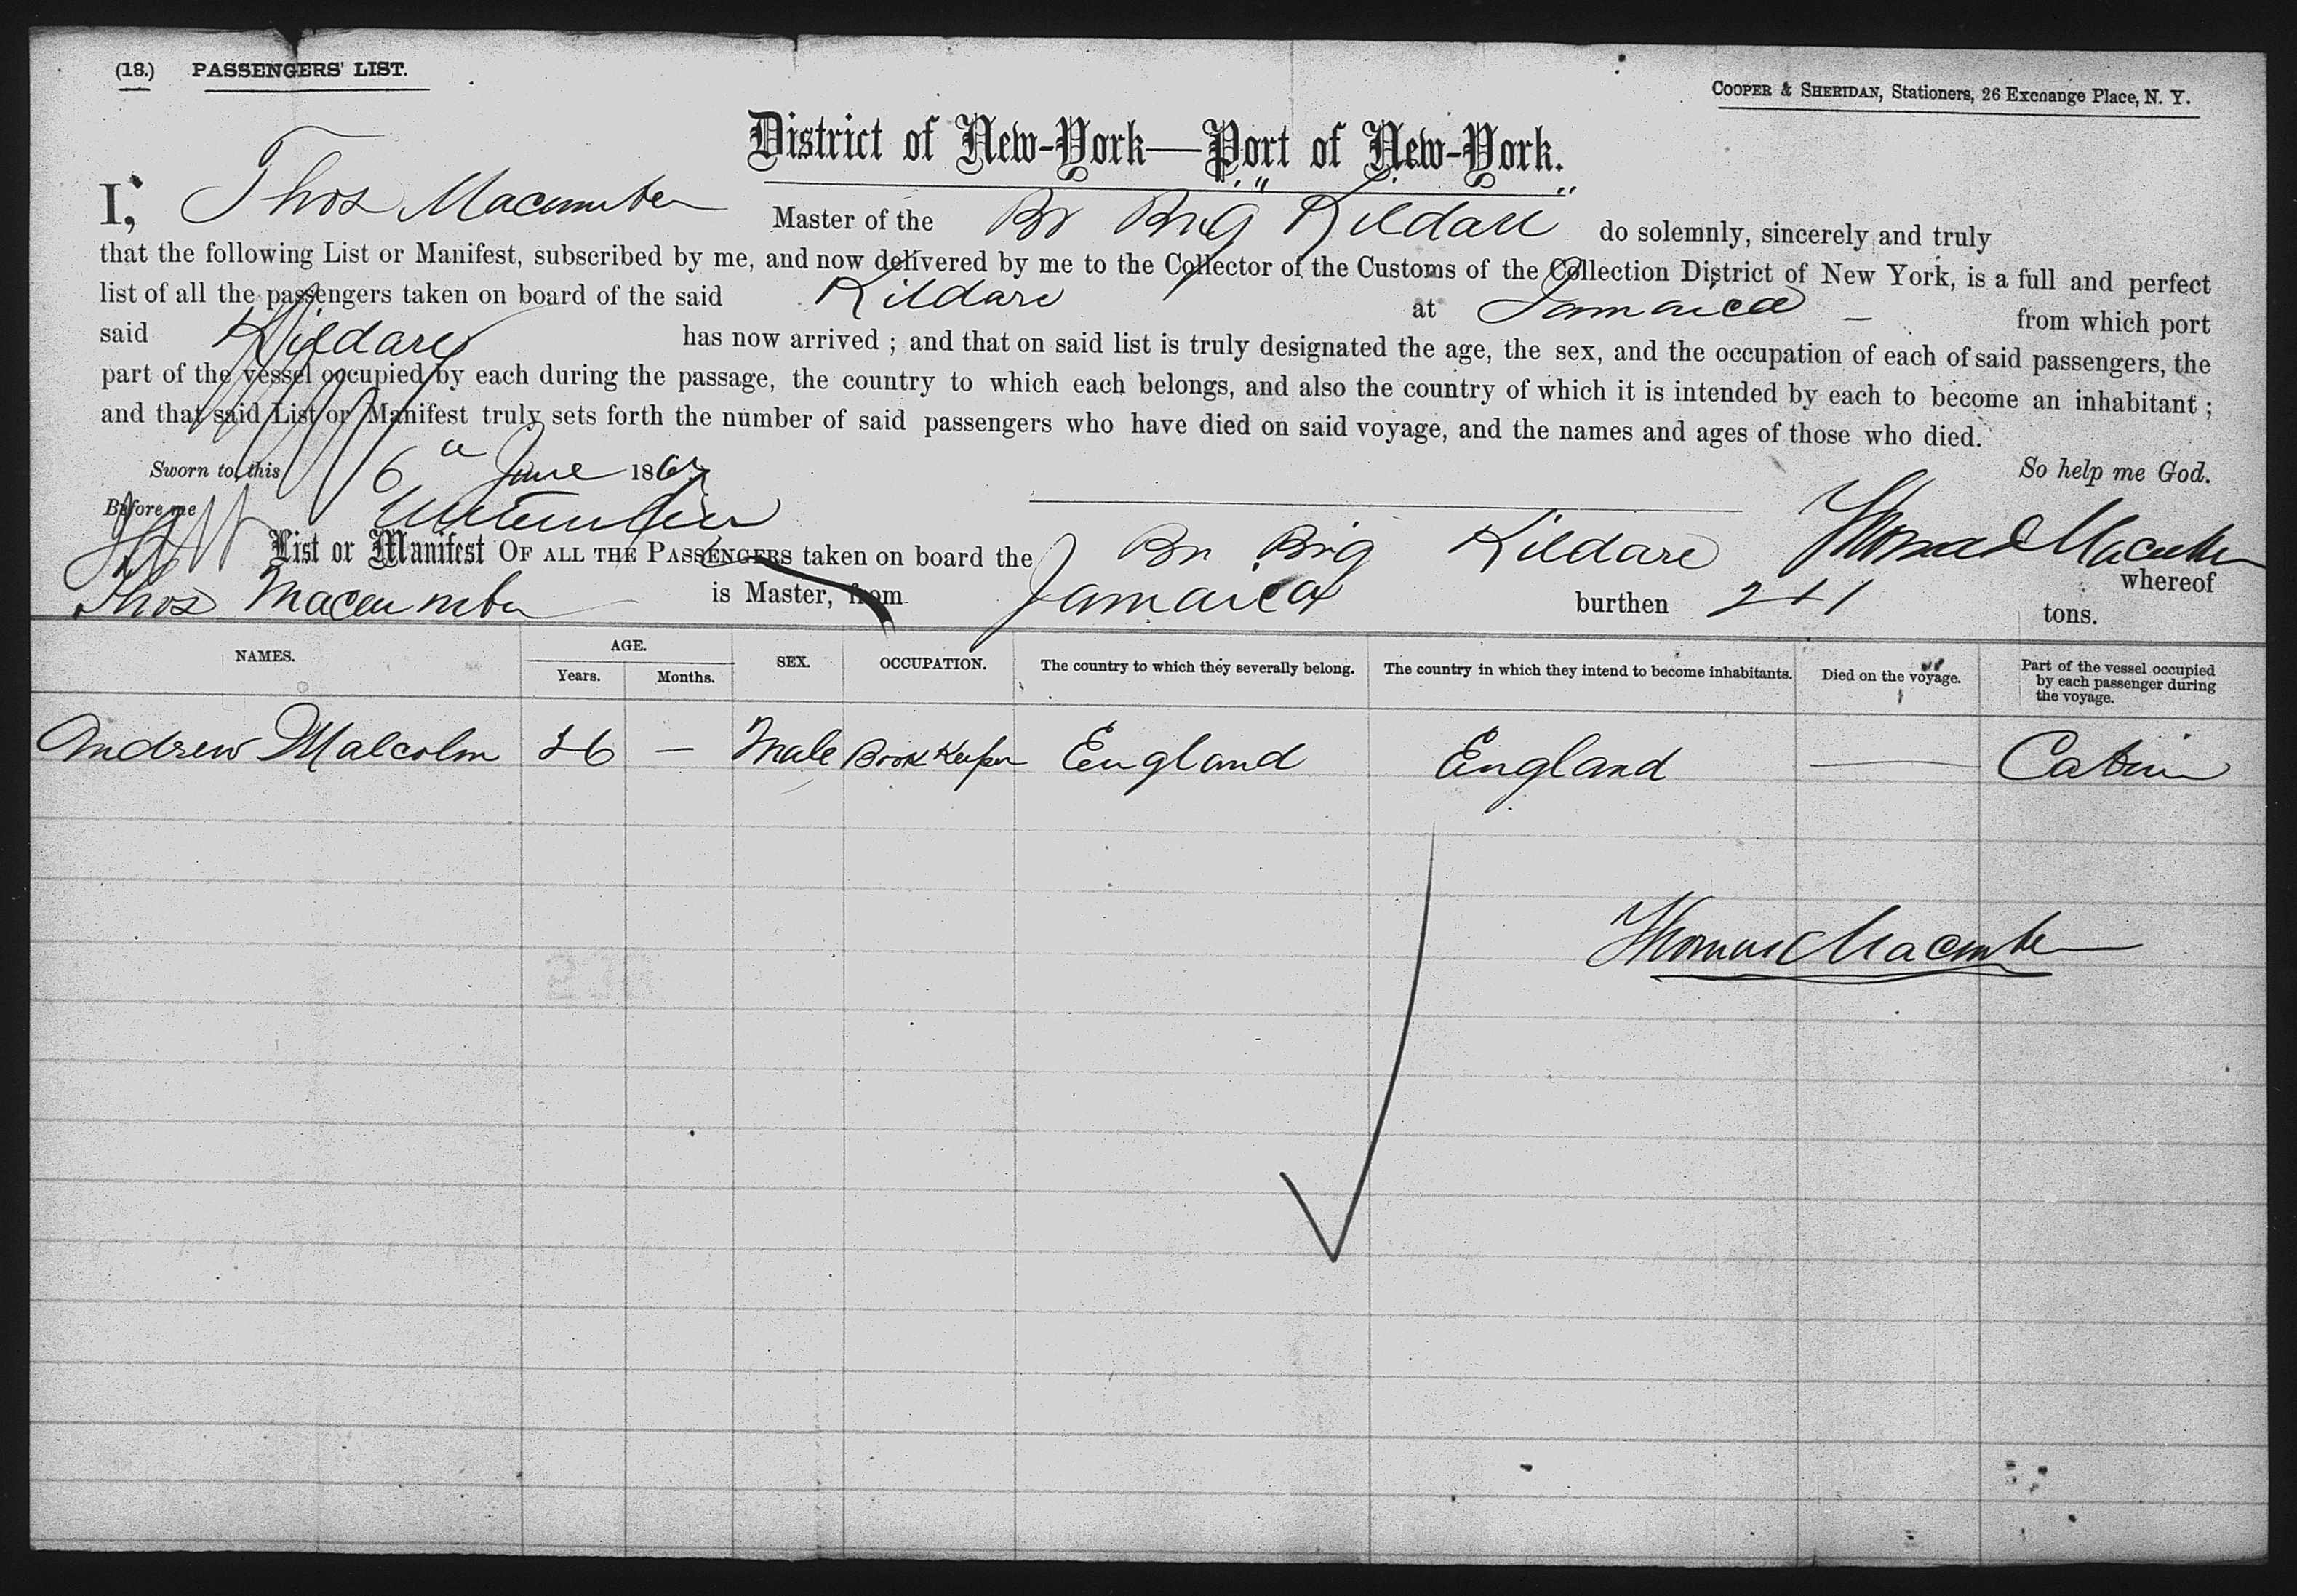 (18.) PASSENGERS' LIST.
COOPER & SHERIDAN, Stationers, 26 Exchange Place, N. Y.
District of New-York—Port of New-York.
I, Thos Macumber Master of the Br Brig Kildare do solemnly, sincerely and truly
that the following List or Manifest, subscribed by me, and now delivered by me to the Collector of the Customs of the Collection District of New York, is a full and perfect
list of all the passengers taken on board of the said Kildare at Jamaica — from which port
said Kildare has now arrived ; and that on said list is truly designated the age, the sex, and the occupation of each of said passengers, the
part of the vessel occupied by each during the passage, the country to which each belongs, and also the country of which it is intended by each to become an inhabitant ;
and that said List or Manifest truly sets forth the number of said passengers who have died on said voyage, and the names and ages of those who died.
Sworn to, this 6 June 186 So help me God.
Before me
Thomas Macumber
List or Manifest OF ALL THE PASSENGERS taken on board the Br Brig Kildare whereof
Thos Macumber is Master, from Jamaica burthen tons.
NAMES. AGE. SEX. OCCUPATION. The country to which they severally belong. The country in which they intend to become inhabitants. Died on the voyage. Part of the vessel occupied by each passenger during the voyage.
Years. Months.
Andrew Malcolm — Male Book Keeper England England — Cabin
Thomas Macumber